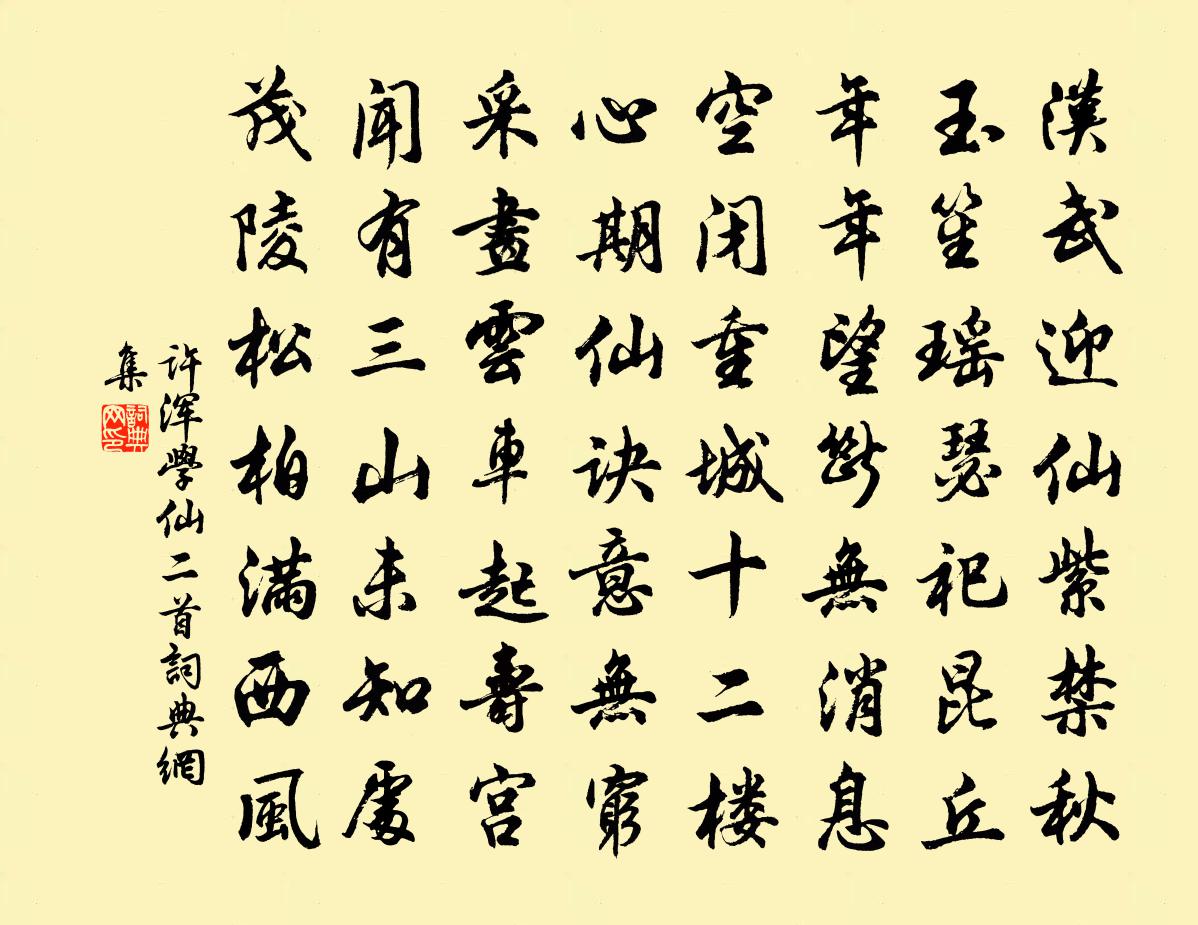 漢武迎仙紫禁秋
玉笙瑶瑟祀昆丘
年年望斷無消息
空闭重城十二楼
心期仙诀意無窮
采畫雲車起壽宫
闻有三山未知處
茂陵松柏满西風
许浑學仙二首詞典網
集
詞典
网印